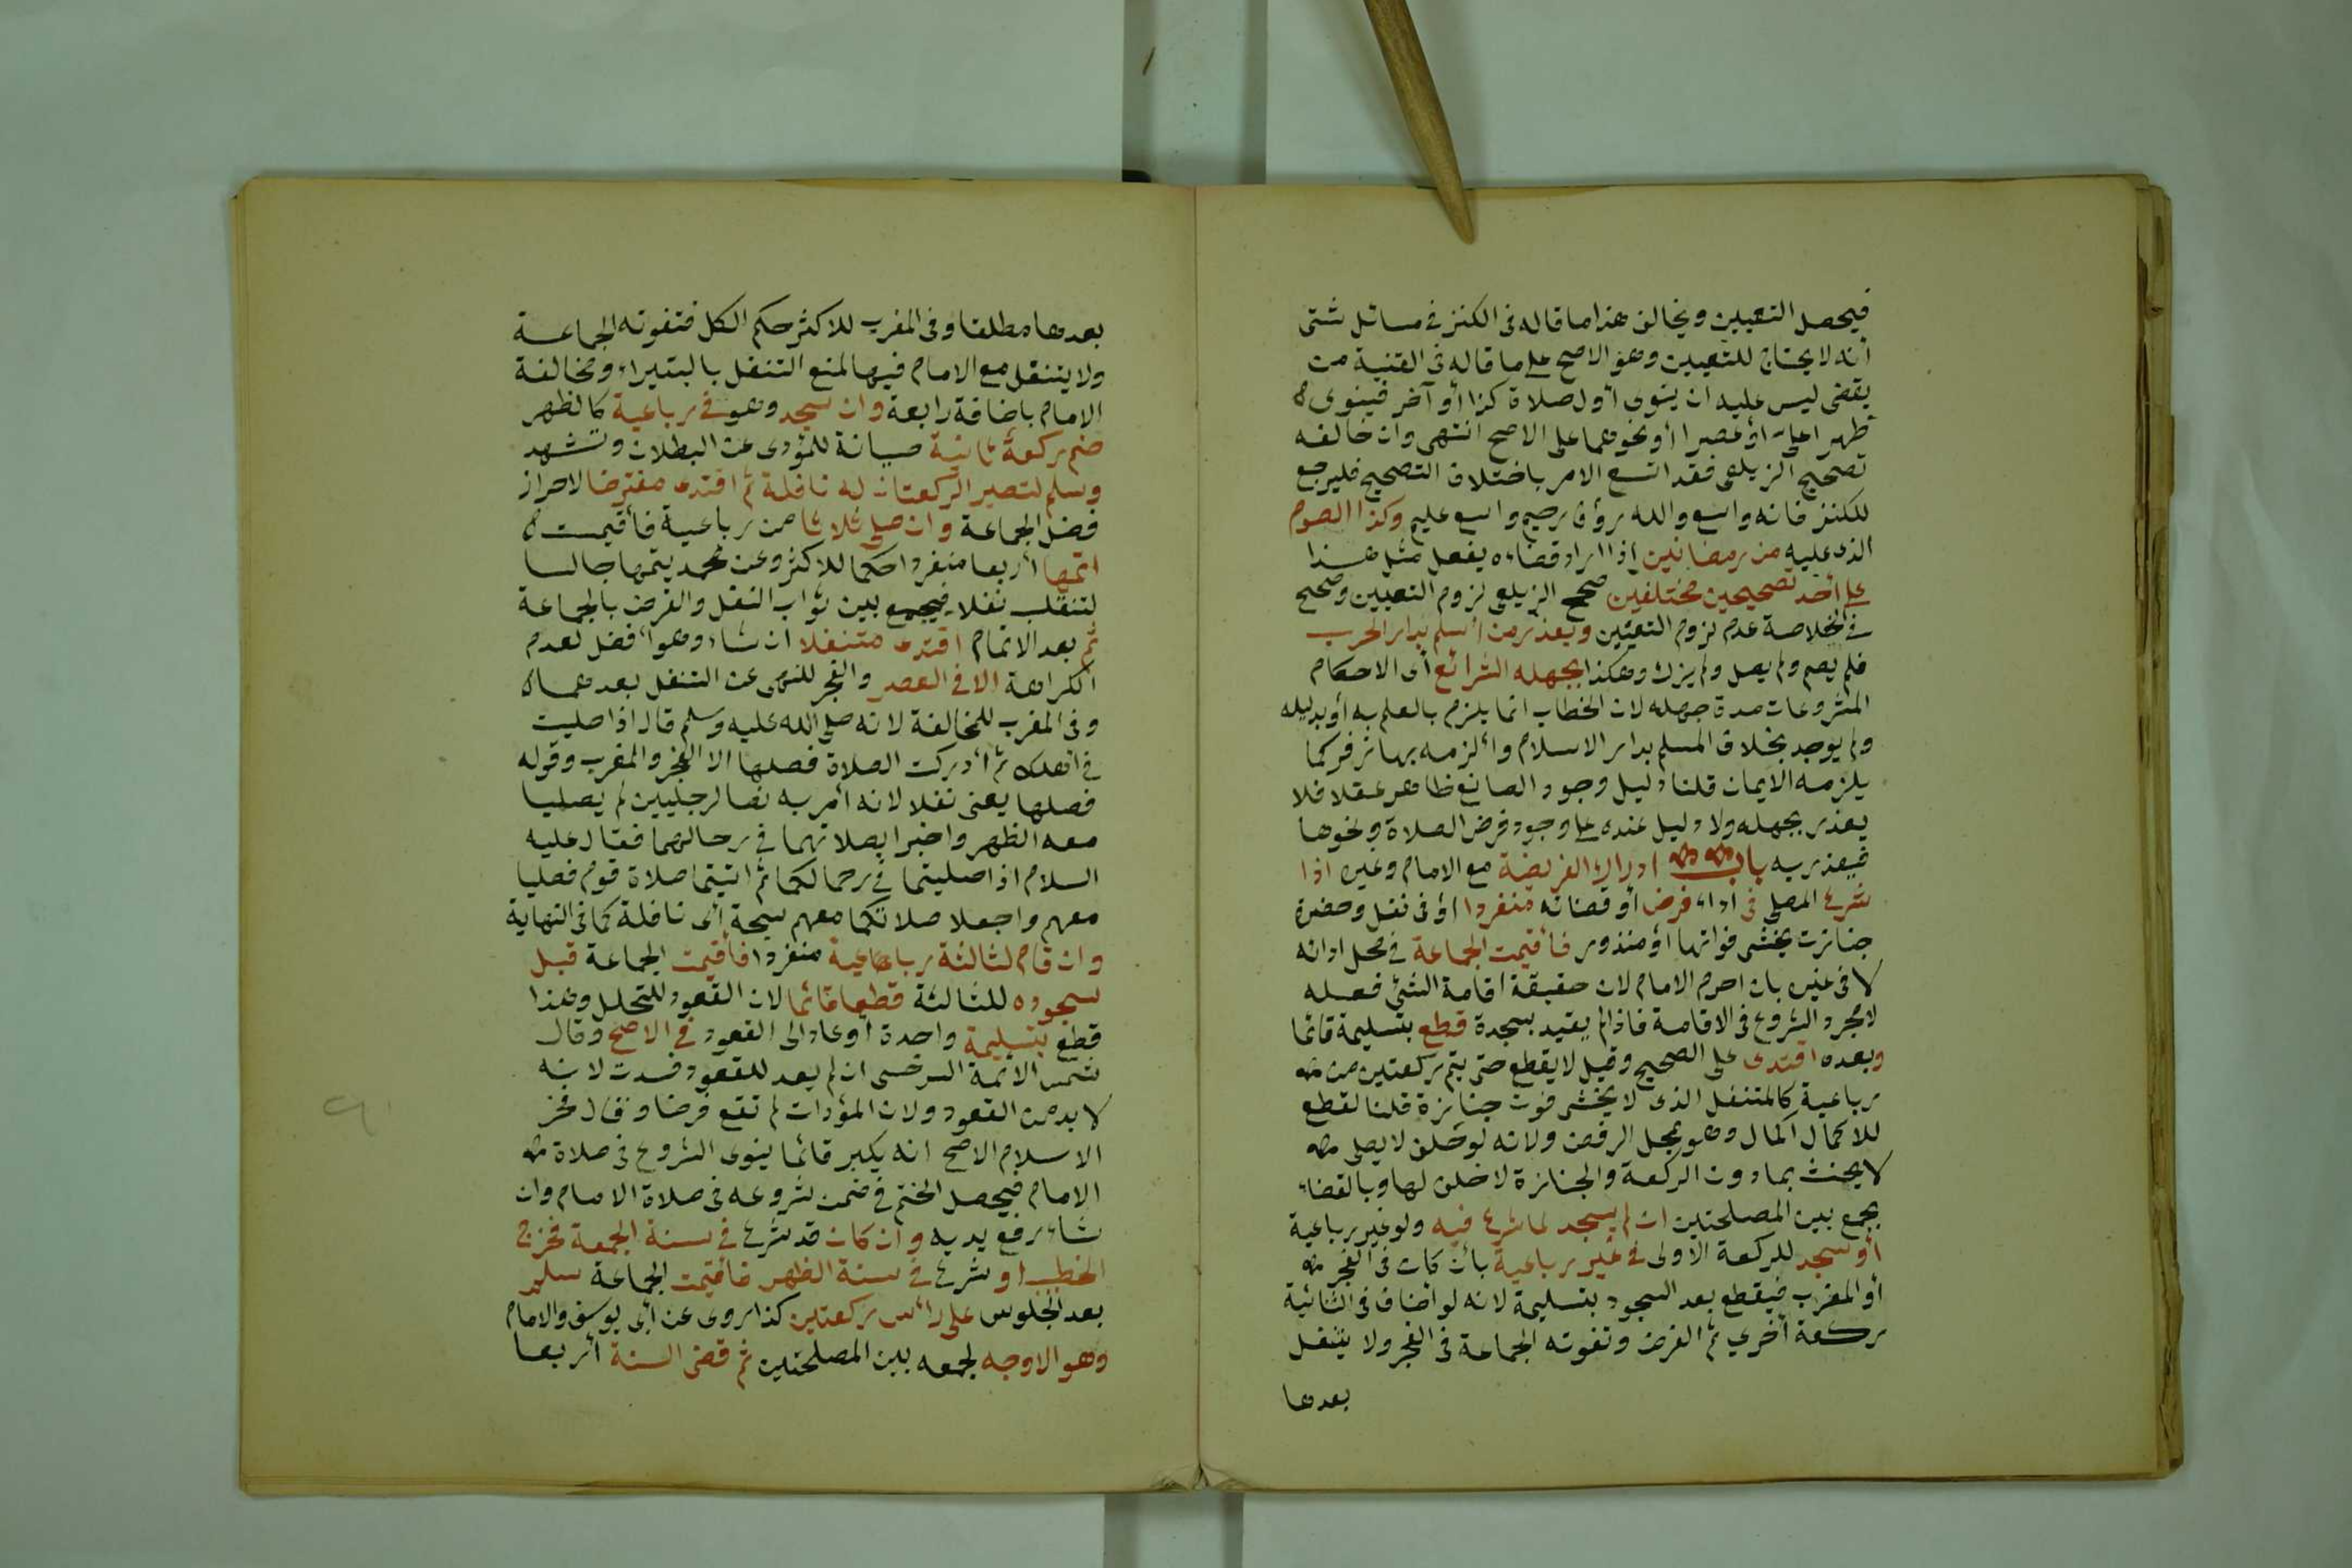 فيحصل التعيين ويخالف هذا ما قاله في الكنز في مسائل شتى
أنه لا يحتاج للتعيين وهو الاصح على ما قاله في القنية من
يقضى ليس عليه ان ينوى أول صلاة كذا أو آخر فينوى
ظهرا على أو عصرا أو نحوهما على الاصح انتهى وان خالفه
تصحيح الزيلعى فقد اتسع الامر باختلاف التصحيح فليرجع
للكنز فانه واسع والله رؤف رحيم واسع عليم وكذا الصوم
الذى عليه من رمضانين اذا اراد قضاءه يفعل مثل هذا
على أحد تصحيحين مختلفين صحح الزيلعى لزوم التعيين وصحح
في الخلاصة عدم لزوم التعيين ويعذر من أسلم بدار الحرب
فلم يصم ولم يصل ولم يزك وهكذا بجهله الشرائع أى الاحكام
المشروعات مدة جهله لان الخطاب انما يلزم بالعلم به أو بدليله
ولم يوجد بخلاف المسلم بدار الاسلام وألزمه بها زفر كما
يلزمه الايمان قلنا دليل وجود الصانع ظاهر عقلا فلا
يعذر بجهله ولا دليل عنده على وجود فرض الصلاة ونحوها
فيعذر به باب ادراك الفريضة مع الامام وغيره اذا
شرع المصلى في اداء فرض أو قضائه منفردا أو فى نفل وحضرت
جنازت يخشى فواتها أو منذور فأقيمت الجماعة في محل ادائه
لا في غيره بان احرم الامام لان حقيقة اقامة الشئ فعله
لا مجرد الشروع في الاقامة فاذا لم يقيد بسجدة قطع بتسليمة قائما
وبعده اقتدى على الصحيح وقيل لا يقطع حتى يتم ركعتين من
رباعية كالمتنفل الذى لا يخشى فوت جنازة قلنا القطع
للاكمال اكمال وهو بمحل الرفض ولانه لو حلف لا يصلى
لا يحنث بما دون الركعة والجنازة لا خلف لها وبالقضاء
يجمع بين المصلحتين ان لم يسجد لما شرع فيه ولو غير رباعية
أو سجد للركعة الاولى في غير رباعية بأن كان فى الفجر
أو المغرب فيقطع بعد السجود بتسليمة لانه لو اضاف فى الثنائية
ركعة أخرى تم الفرض وتفوته الجماعة فى الفجر ولا يتنفل
بعدها
بعدها مطلقا وفى المغرب للاكثر حكم الكل فتفوته الجماعة
ولا يتنفل مع الامام فيها لمنع التنفل بالبتيراء ومخالفة
الامام باضافة رابعة وان سجد وهو فى رباعية كالظهر
ضم ركعة ثانية صيانة للمؤدى عن البطلان وتشهد
وسلم لتصير الركعتان له نافلة ثم اقتدى مفترضا لاحراز
فضل الجماعة وان صلى ثلاثا من رباعية فأقيمت
اتمها أربعا منفردا حكما للاكثر وعن محمد يتمها جالسا
لتنقلب نفلا فيجمع بين ثواب النفل والفرض بالجماعة
ثم بعد الاتمام اقتدى متنفلا ان شاء وهو أفضل لعدم
الكراهة الا فى العصر والفجر للنهى عن التنفل بعدهما
وفى المغرب للمخالفة لانه صلى الله عليه وسلم قال اذا صليت
في اهلك ثم أدركت الصلاة فصلها الا الفجر والمغرب وقوله
فصلها يعنى نفلا لانه أمر به نصا لرجليين لم يصليا
معه الظهر واخبرا بصلاتهما في رحالهما فقال عليه
السلام اذا صليتما في رحالكما ثم اتيتما صلاة قوم فصليا
معهم واجعلا صلاتكما معهم سبحة أى نافلة كما فى النهاية
وان قام لثالثة رباعية منفردا فأقيمت الجماعة قبل
سجوده للثالثة قطعها قائما لان القعود للتحلل وهذا
قطع بتسليمة واحدة أو عاد الى القعود في الاصح وقال
شمس الائمة السرخسى ان لم يعد للقعود فسدت لانه
لا بد من القعود ولان المؤدات لم تقع فرضا وقال فخر
الاسلام الاصح انه يكبر قائما ينوى الشروع فى صلاة
الامام فيحصل الختم في ضمن شروعه فى صلاة الامام وان
شاء رفع يديه وان كان قد شرع في سنة الجمعة فخرج
الخطيب او شرع في سنة الظهر فأقيمت الجماعة سلم
بعد الجلوس على رأس ركعتين كذا روى عن أبى يوسف والامام
وهو الاوجه لجمعه بين المصلحتين ثم قضى السنة أربعا